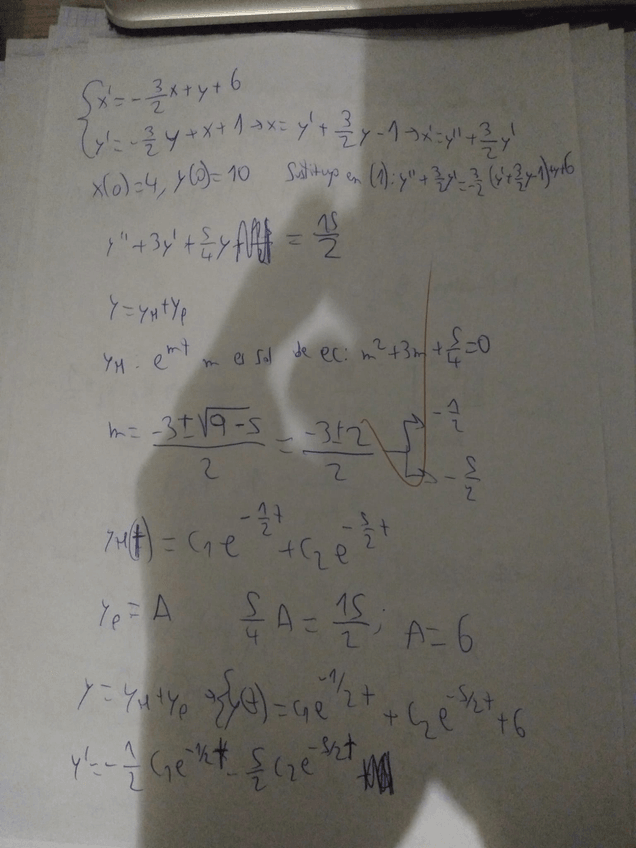 {x' = -3/2 x + y + 6
{y' = -3/2 y + x + 1 → x = y' + 3/2 y - 1 → x' = y'' + 3/2 y'
x(0) = 4, y(0) = 10 Sustituyo en (1): y'' + 3/2 y' = -3/2 (y' + 3/2 y - 1) + y + 6
y'' + 3y' + 5/4 y = 15/2
y = yH + yp
yH. e^mt m es sol de ec: m² + 3m + 5/4 = 0
m = (-3 ± √(9 - 5))/2 = (-3 ± 2)/2 → -1/2
→ -5/2
yH(t) = C1 e^(-1/2 t) + C2 e^(-5/2 t)
yp = A 5/4 A = 15/2; A = 6
y = yH + yp → {y(t) = C1 e^(-1/2 t) + C2 e^(-5/2 t) + 6
y' = -1/2 C1 e^(-1/2 t) - 5/2 C2 e^(-5/2 t)